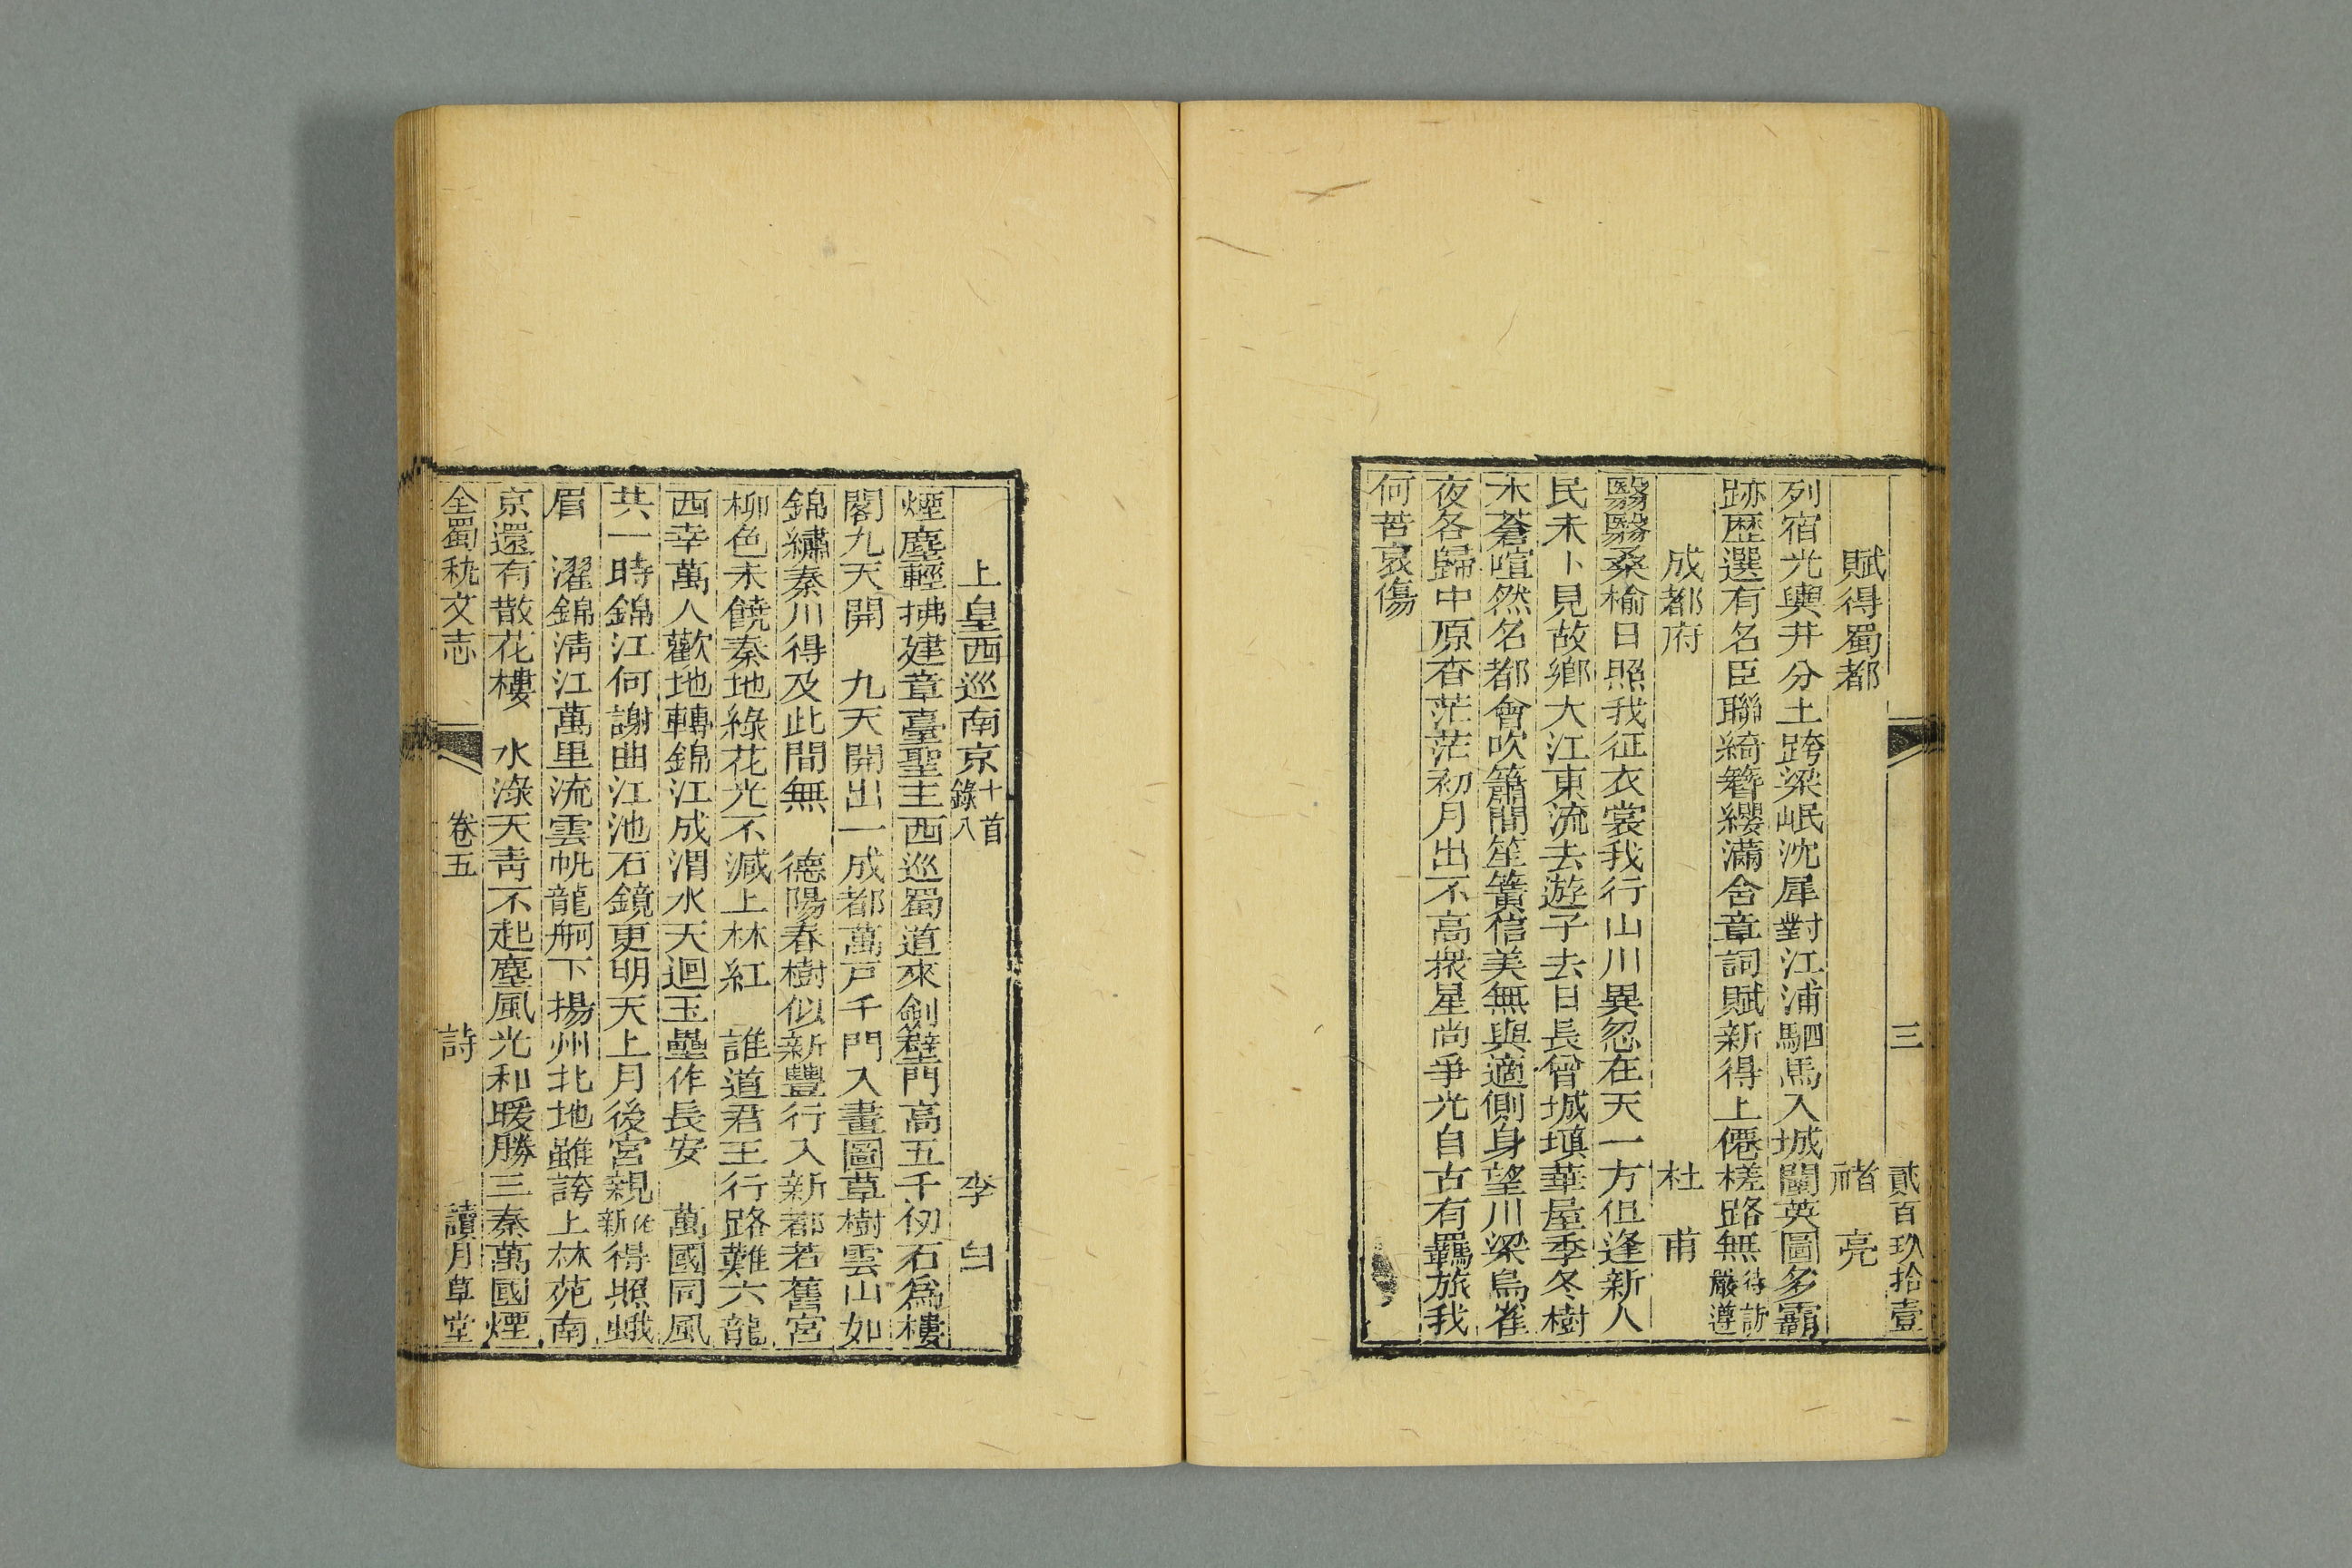 三 貳百玖拾壹
賦得蜀都 褚亮
列宿光輿井分土跨梁岷沈犀對江浦駟馬入城闉英圖多霸
跡歷選有名臣聯綺簪纓滿舍章詞賦新得上僊槎路無待訪嚴遵
成都府 杜甫
翳翳桑榆日照我征衣裳我行山川異忽在天一方但逢新人
民未卜見故鄉大江東流去遊子去日長曾城塡華屋季冬樹
木蒼喧然名都會吹簫間笙簧信美無與適側身望川梁鳥雀
夜各歸中原杳茫茫初月出不高衆星尚爭光自古有羈旅我
何苦哀傷
上皇西巡南京十首錄八 李白
煙塵輕拂建章臺聖主西巡蜀道來劍壁門高五千仞石爲樓
閣九天開 九天開出一成都萬戸千門入畫圖草樹雲山如
錦繡秦川得及此間無 德陽春樹似新豐行入新都若舊宮
柳色未饒秦地綠花光不減上林紅 誰道君王行路難六龍
西幸萬人歡地轉錦江成渭水天迴玉壘作長安 萬國同風
共一時錦江何謝曲江池石鏡更明天上月後宮親作新得照蛾
眉 濯錦淸江萬里流雲帆龍舸下揚州北地雖誇上林苑南
京還有散花樓 水淥天靑不起塵風光和暖勝三秦萬國煙
全蜀秇文志 卷五 詩 讀月草堂